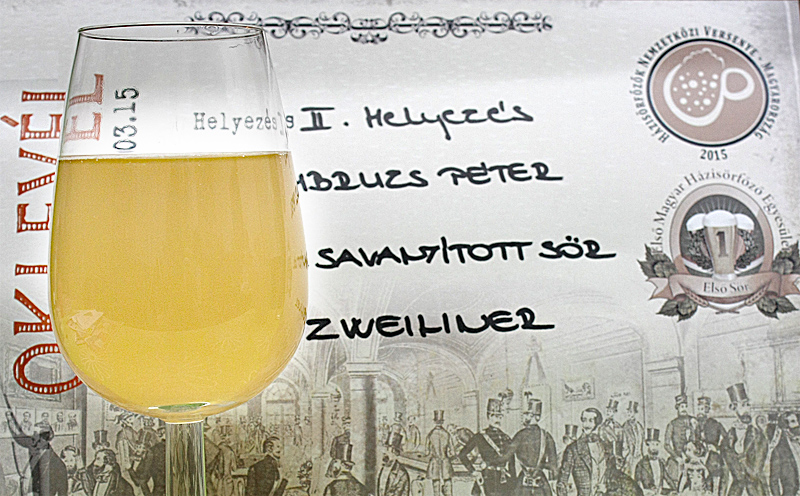 OKLEVÉL
03.15
Helyezés II. Helyezés
PÉTER
SAVANYÍTOTT SÖR
ZWEILINER
HÁZISÖRFŐZŐK NEMZETKÖZI VERSENYE - MAGYARORSZÁG
2015
Első Magyar Házisörfőző Egyesület
1
Első Sör